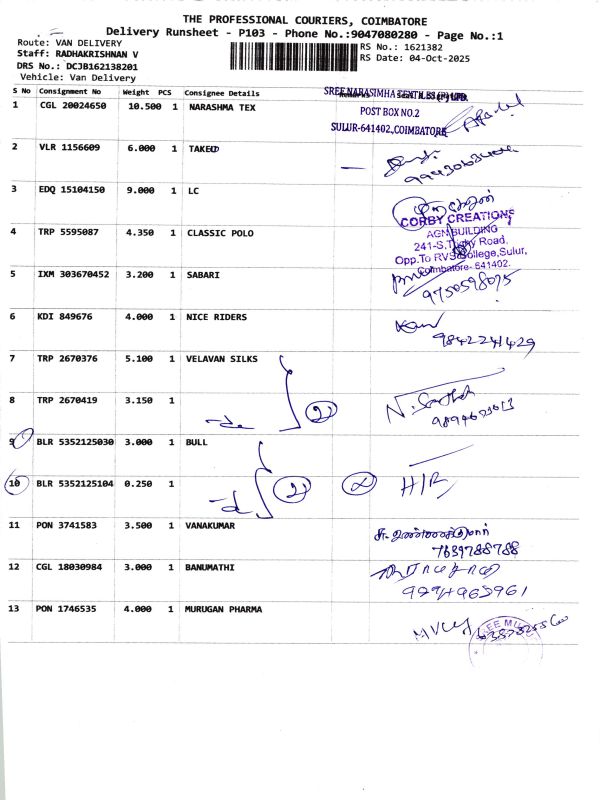 THE PROFESSIONAL COURIERS, COIMBATORE
Delivery Runsheet - P103 - Phone No.:9047080280 - Page No.:1
Route: VAN DELIVERY
RS No.: 1621382
Staff: RADHAKRISHNAN V
RS Date: 04-Oct-2025
DRS No.: DCJB162138201
Vehicle: Van Delivery
S No Consignment No Weight PCS Consignee Details Remarks
SREE NARASIMHA TEXTILES (P) LTD.
1 CGL 20024650 10.500 1 NARASHMA TEX
POST BOX NO.2
SULUR-641402, COIMBATORE
2 VLR 1156609 6.000 1 TAKEO
3 EDQ 15104150 9.000 1 LC
CORBY CREATIONS
4 TRP 5595087 4.350 1 CLASSIC POLO
AGN BUILDING
241-S, Trichy Road,
Opp.To RVS College, Sulur,
Coimbatore- 641402.
5 IXM 303670452 3.200 1 SABARI
9750598075
6 KDI 849676 4.000 1 NICE RIDERS
9842241429
7 TRP 2670376 5.100 1 VELAVAN SILKS
8 TRP 2670419 3.150 1
2)
9 BLR 5352125030 3.000 1 BULL
10 BLR 5352125104 0.250 1
2)
H/R
11 PON 3741583 3.500 1 VANAKUMAR
7639788788
12 CGL 18030984 3.000 1 BANUMATHI
13 PON 1746535 4.000 1 MURUGAN PHARMA